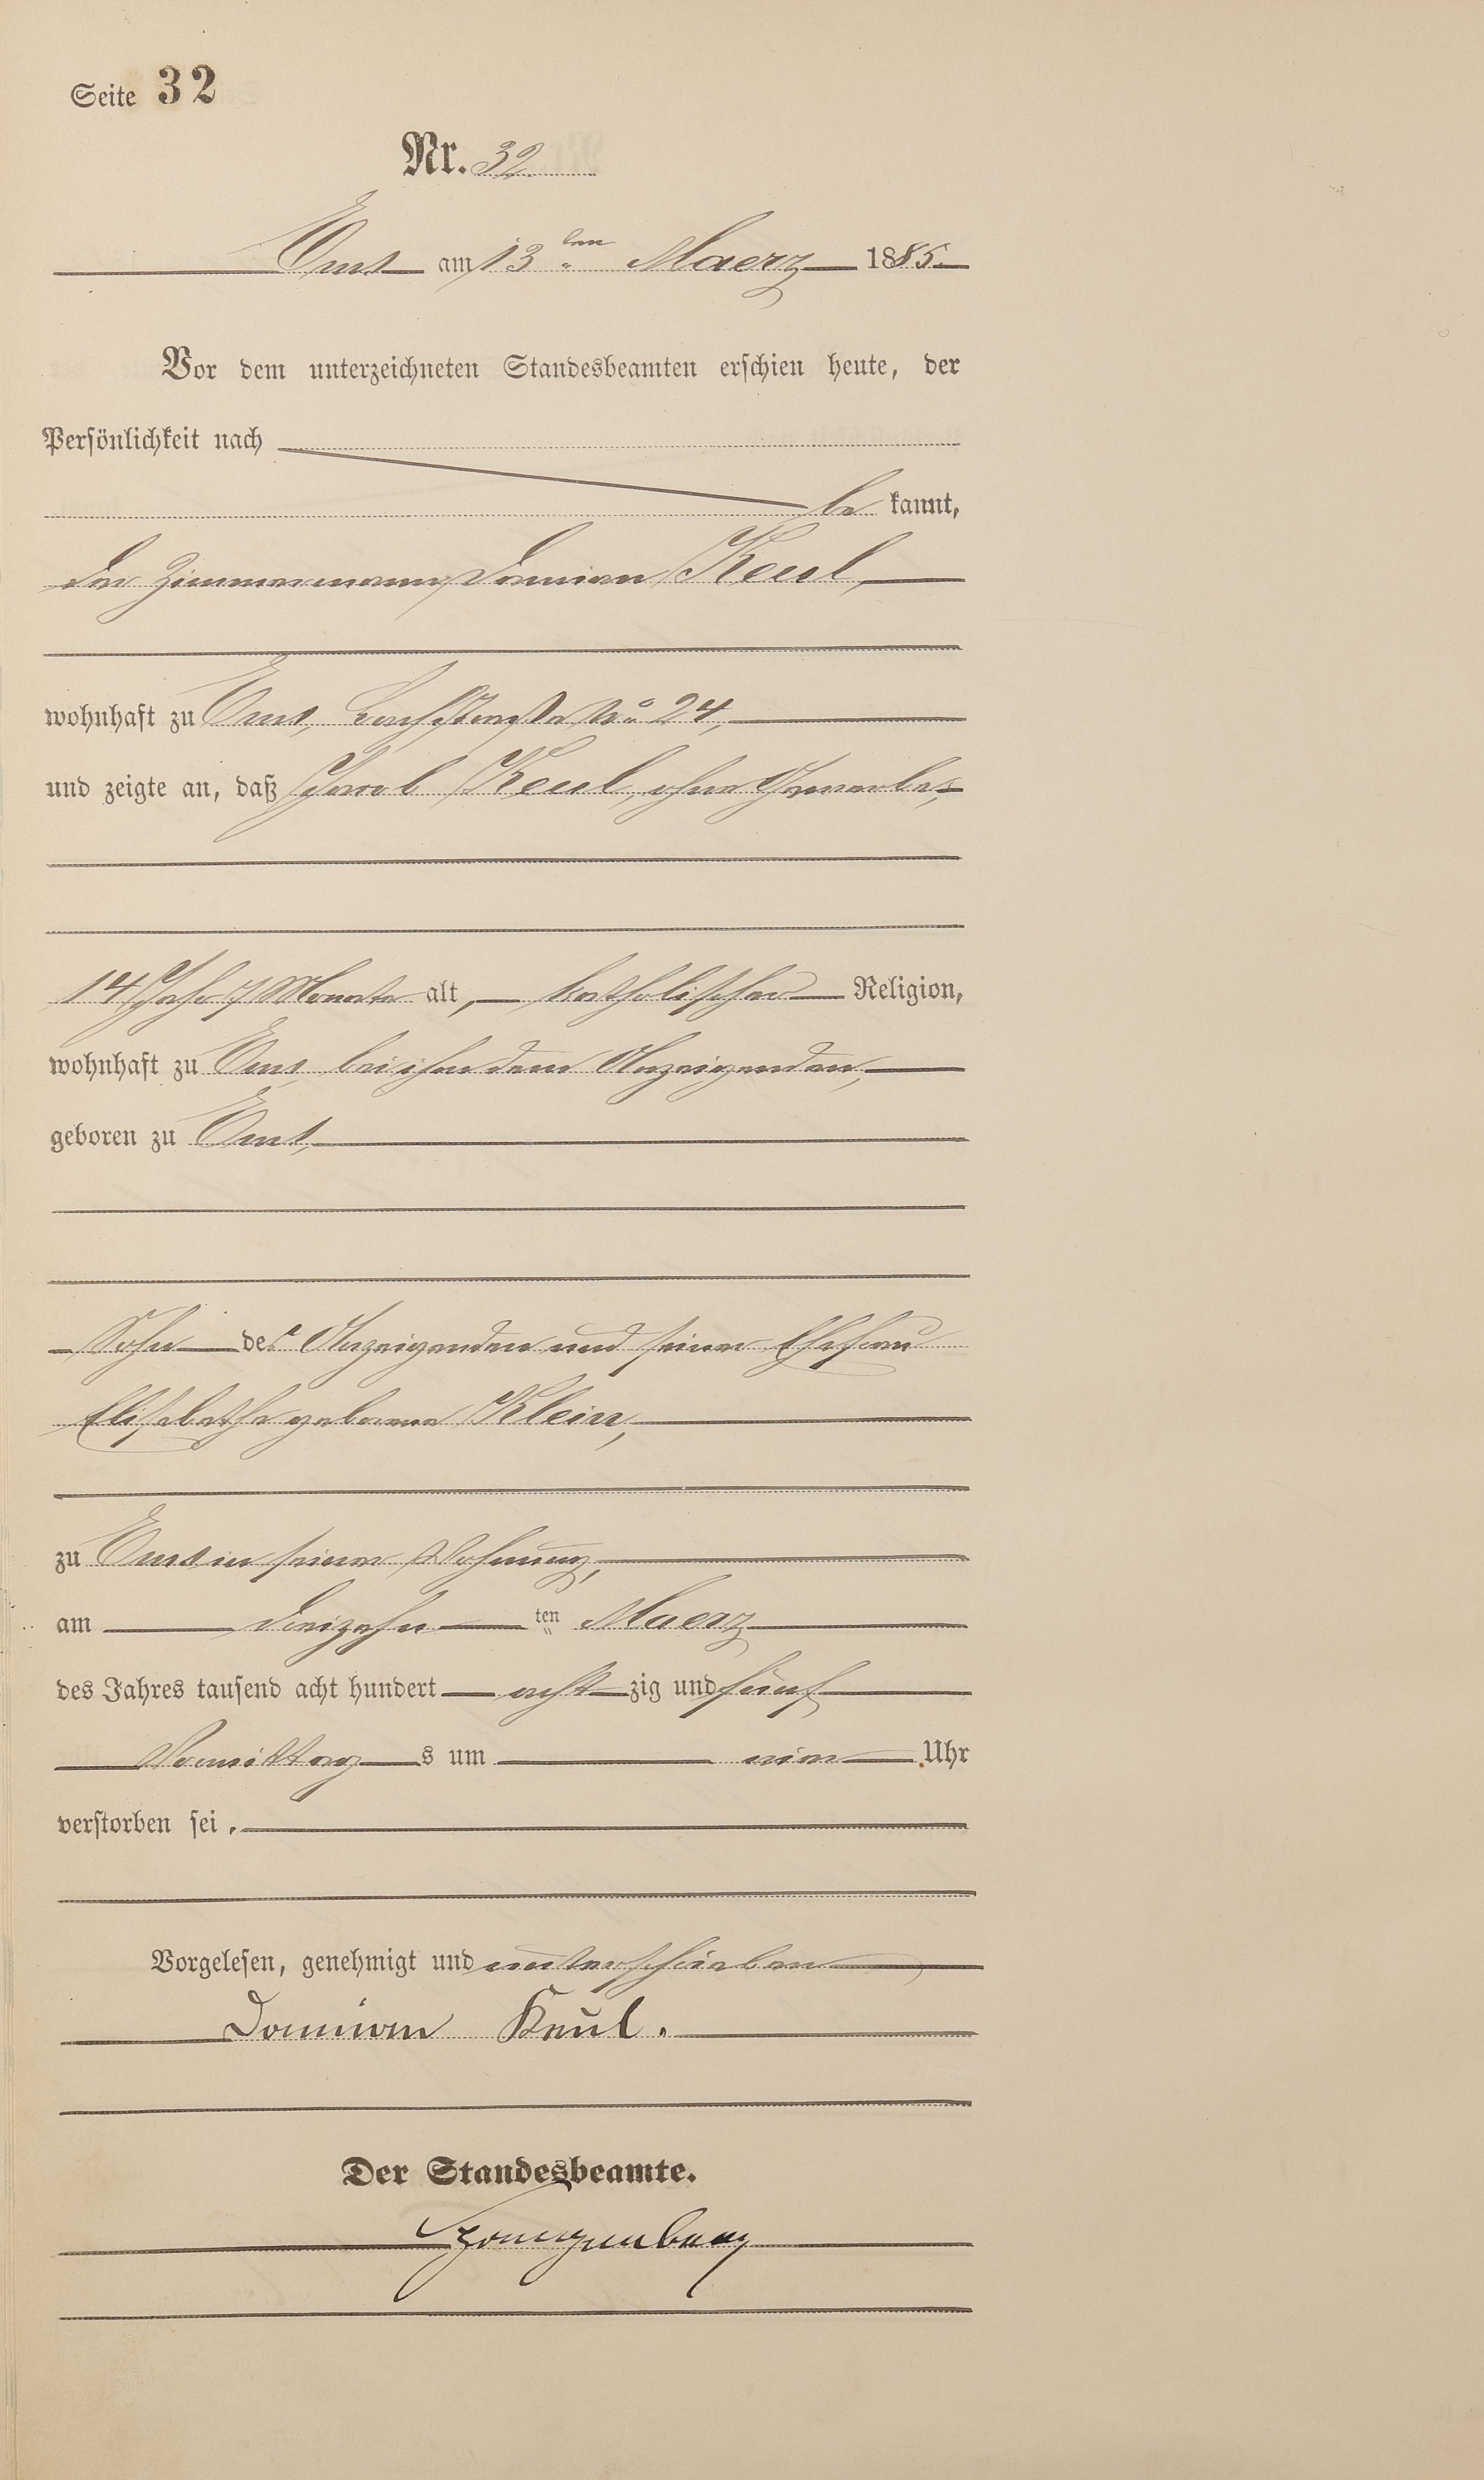 Seite 32
Nr. 32.
Ems am 13ten Maerz 1885.
Vor dem unterzeichneten Standesbeamten erschien heute, der
Persönlichkeit nach
be kannt,
der Zimmermann Damian Keul,
wohnhaft zu Ems, No 24,
und zeigte an, daß Jacob Keul, ohne Gewerbe,
14 Jahr 7 Monate alt, katholischer Religion,
wohnhaft zu Ems bei ihm dem Anzeigenden,
geboren zu Ems,
Sohn des Anzeigenden und seiner Ehefrau
Elisabethe geborene Klein,
zu Ems in seiner Wohnung,
am dreizehn ten Maerz
des Jahres tausend acht hundert acht zig und fünf
Vormittag s um Uhr
verstorben sei.
Vorgelesen, genehmigt und unterschrieben
Damian Keul.
Der Standesbeamte.